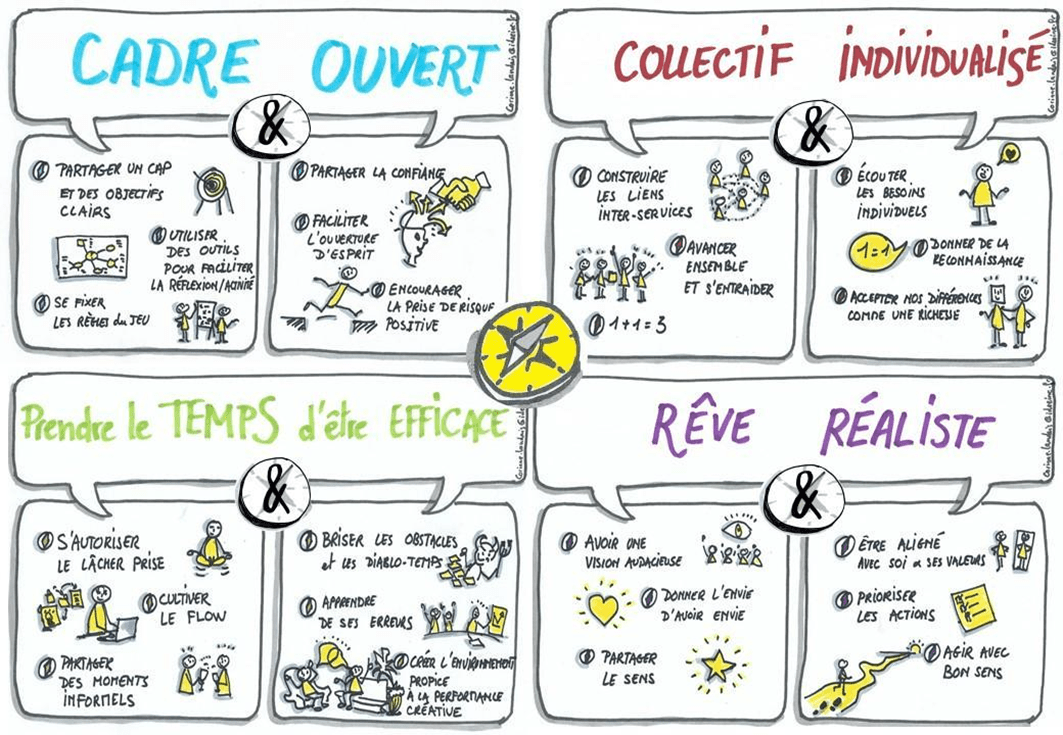 CADRE OUVERT
&
PARTAGER UN CAP
ET DES OBJECTIFS
CLAIRS
UTILISER
DES OUTILS
POUR FACILITER
LA RÉFLEXION/ACTIVITÉ
SE FIXER
LES RÈGLES du JEU
PARTAGER LA CONFIANCE
FACILITER
L'OUVERTURE
D'ESPRIT
ENCOURAGER
LA PRISE DE RISQUE
POSITIVE
COLLECTIF INDIVIDUALISÉ
&
CONSTRUIRE
LES LIENS
INTER-SERVICES
AVANCER
ENSEMBLE
ET S'ENTRAIDER
1+1=3
ÉCOUTER
LES BESOINS
INDIVIDUELS
1=1
DONNER DE LA
RECONNAISSANCE
ACCEPTER NOS DIFFÉRENCES
COMME UNE RICHESSE
Prendre le TEMPS d'être EFFICACE
&
S'AUTORISER
LE LÂCHER PRISE
CULTIVER
LE FLOW
PARTAGER
DES MOMENTS
INFORMELS
BRISER LES OBSTACLES
et LES DIABLO-TEMPS
APPRENDRE
DE SES ERREURS
CRÉER L'ENVIRONNEMENT
PROPICE
À LA PERFORMANCE
CRÉATIVE
RÊVE RÉALISTE
&
AVOIR UNE
VISION AUDACIEUSE
DONNER L'ENVIE
D'AVOIR ENVIE
PARTAGER
LE SENS
ÊTRE ALIGNÉ
AVEC SOI & SES VALEURS
PRIORISER
LES ACTIONS
AGIR AVEC
BON SENS